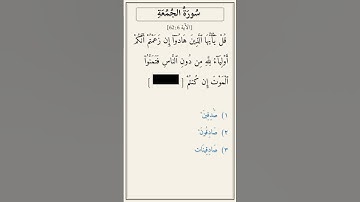 سُورَةُ الجُمُعَةِ
[الآية 62:6]
قُلْ يَٰٓأَيُّهَا ٱلَّذِينَ هَادُوٓا۟ إِن زَعَمْتُمْ أَنَّكُمْ
أَوْلِيَآءُ لِلَّهِ مِن دُونِ ٱلنَّاسِ فَتَمَنَّوُا۟
ٱلْمَوْتَ إِن كُنتُمْ [ ]
١) صَٰدِقِينَ
٢) صَادِقُونَ
٣) صَادِقِينَات